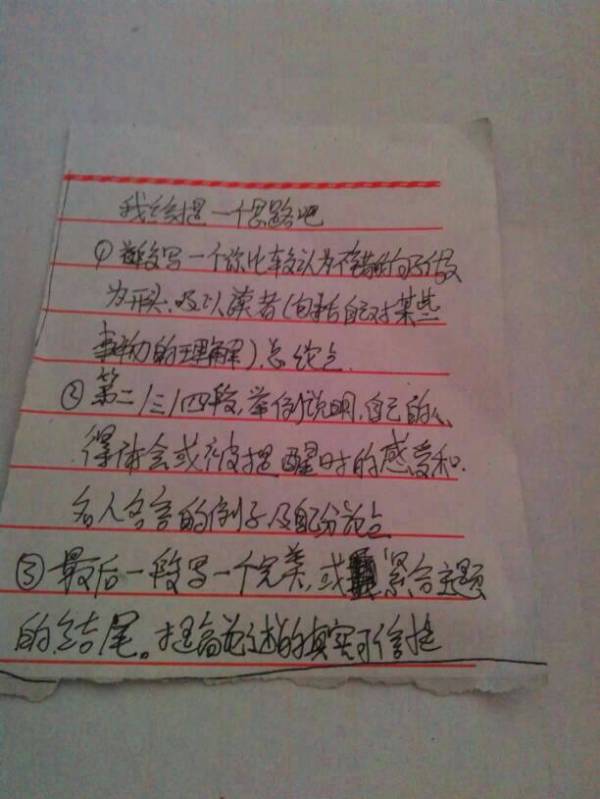 我给提一个思路吧
①首段写一个你比较认为不错的句子做
为开头,及以读者(包括自己对某些
事物的理解)总论点.
②第二/三/四段,举例说明,自己的心
得体会或被提醒时的感受和.
名人名言的例子及配分论点
③最后一段写一个完美,或紧合主题
的结尾。提高论述的真实可信